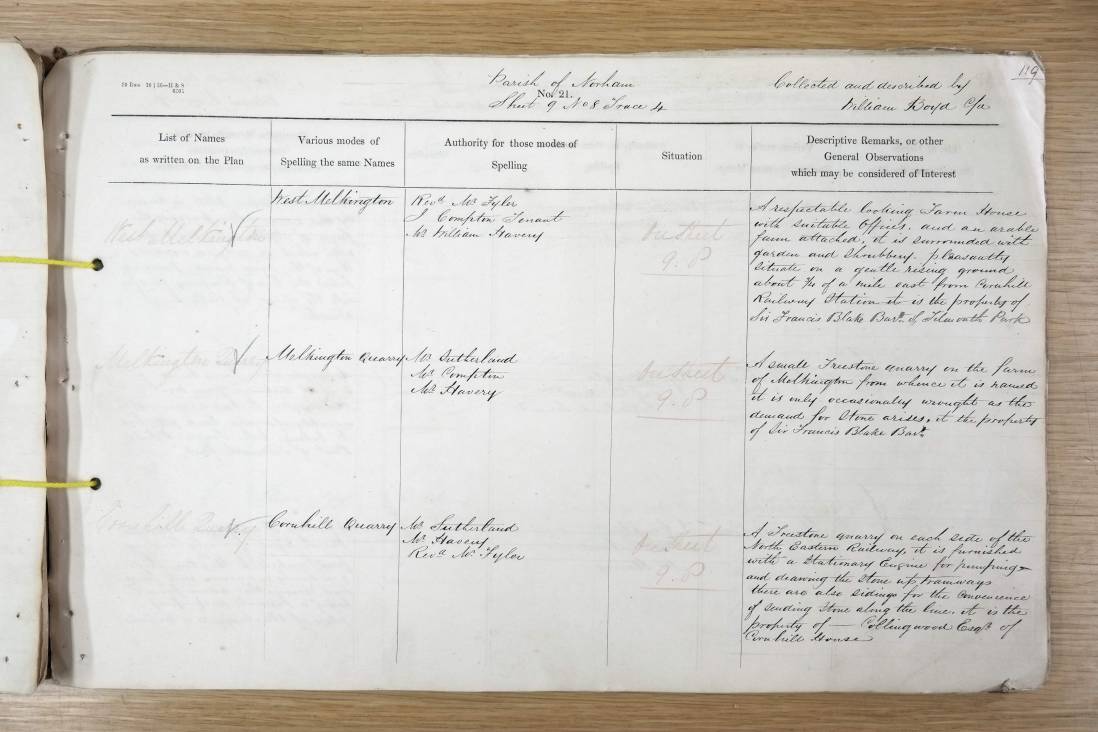 119
Parish of Norham
Collected and described by
No. 21.
Sheet 9 No 8 Trace 4
William Boyd C/a
List of Names
as written on the Plan
Various modes of
Spelling the same Names
Authority for those modes of
Spelling
Situation
Descriptive Remarks, or other
General Observations
which may be considered of Interest
West Melkington
West Melkington
Revd. Mr. Tyler
J Compton Tenant
Mr William Havery
On Sheet
9. 8
A respectable looking Farm House
with suitable Offices, and an arable
farm attached, it is surrounded with
garden and Shrubbery. pleasantly
situate on a gentle rising ground
about 3/4 of a mile east from Cornhill
Railway Station it is the property of
Sir Francis Blake Bart. of Tilmouth Park
Melkington Quarry
Melkington Quarry
Mr. Sutherland
Mr. Compton
Mr. Havery
On Sheet
9. 8
A small Freestone quarry on the farm
of Melkington from whence it is named
it is only occasionally wrought as the
demand for Stone arises, it the property
of Sir Francis Blake Bart.
Cornhill Quarry
Cornhill Quarry
Mr. Sutherland
Mr. Havery
Revd. Mr. Tyler
On Sheet
9. 8
A Freestone quarry on each side of the
North Eastern Railway, it is furnished
with a Stationary Engine for pumping
and drawing the stone up tramways
there are also sidings for the convenience
of sending stone along the line. it is the
property of — Collingwood Esqr. of
Cornhill House